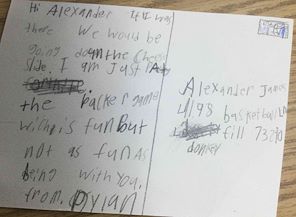 Hi Alexander If I was
there we would be
going down the cheese
slide. I am just
the packer game
wich is fun but
not as fun as
being with you.
from, Dylan
Alexander James
4198 basketball
fill 73210
donkey